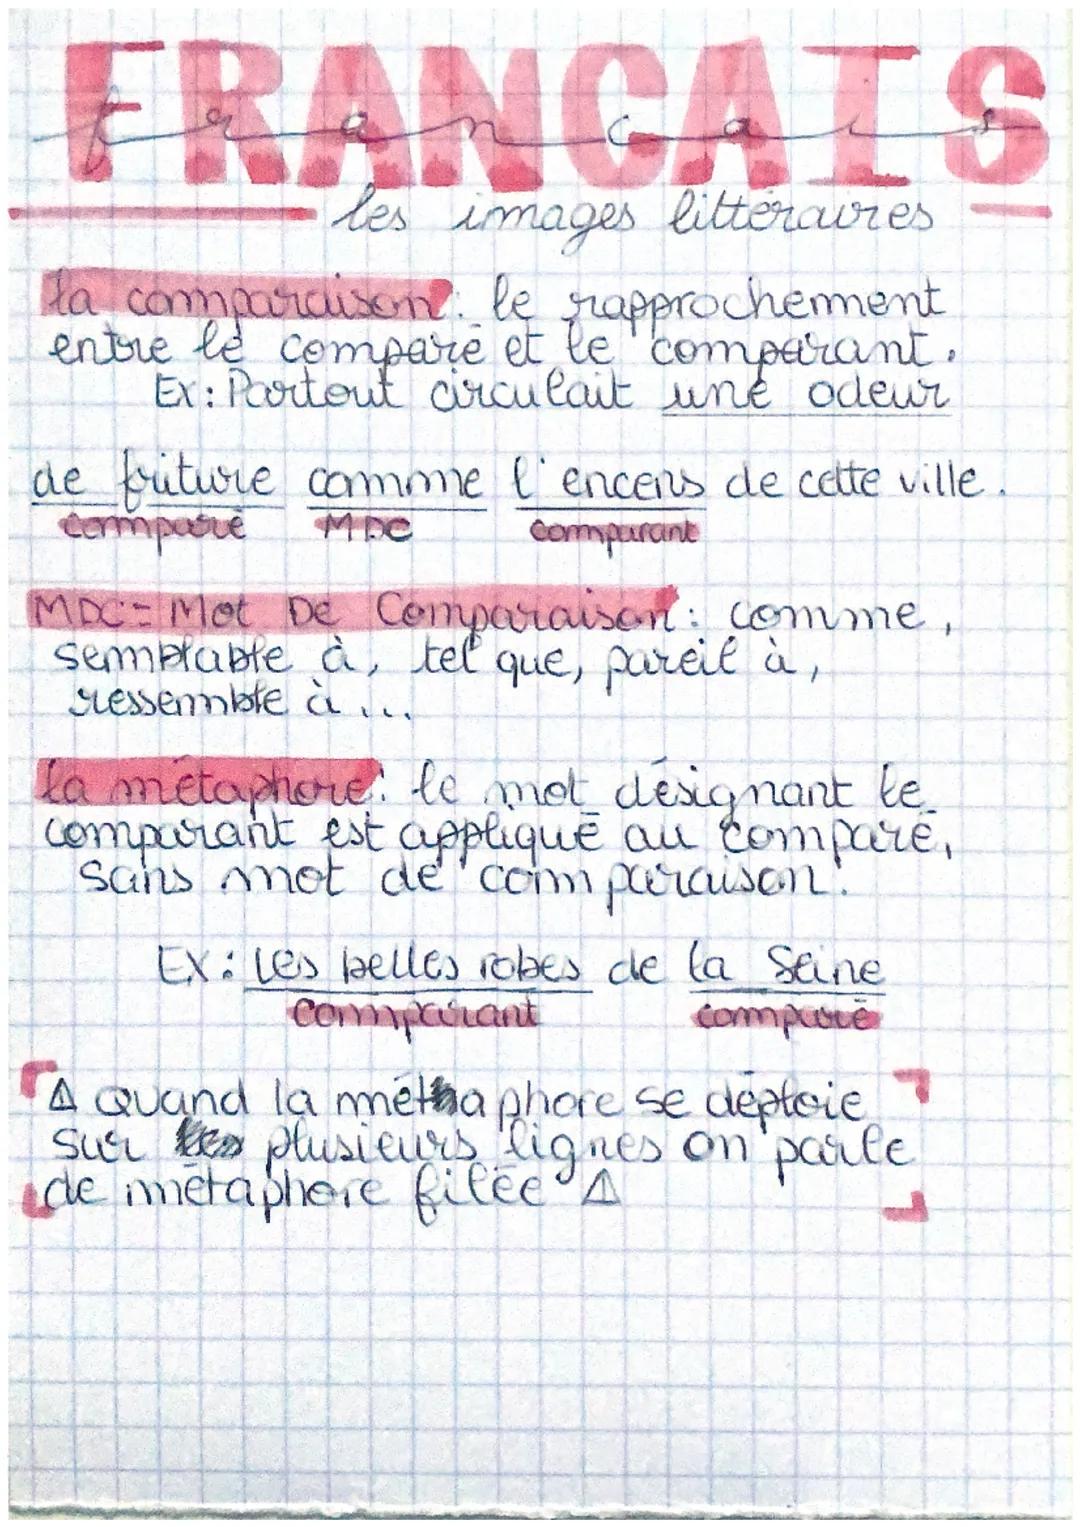 FRANCAIS
francais
les images littéraires
la comparaison : le rapprochement
entre le comparé et le comparant.
Ex : Partout circulait une odeur
de friture comme l'encens de cette ville.
comparé MDC comparant
MDC = Mot De Comparaison : comme,
semblable à, tel que, pareil à,
ressemble à ...
la métaphore : le mot désignant le
comparant est appliqué au comparé,
sans mot de comparaison.
EX : Les belles robes de la Seine
comparant comparé
⚠ Quand la métaphore se déploie
sur plusieurs lignes on parle
de métaphore filée ⚠